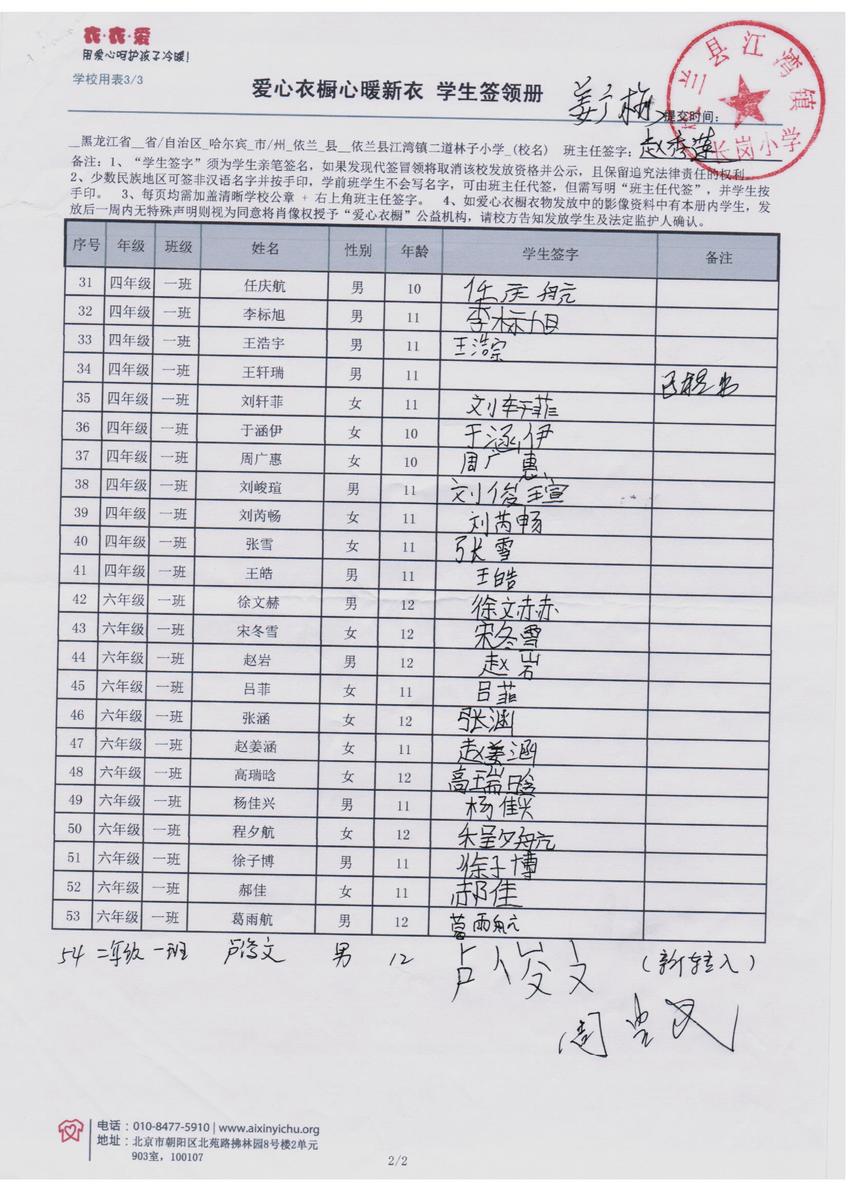 衣·衣·爱
用爱心呵护孩子冷暖!
学校用表3/3
爱心衣橱心暖新衣 学生签领册
姜广梅
提交时间:
依兰县江湾镇长岗小学
__黑龙江省__省/自治区_哈尔宾_市/州_依兰_县__依兰县江湾镇二道林子小学_(校名) 班主任签字:
备注: 1、“学生签字”须为学生亲笔签名, 如果发现代签冒领将取消该校发放资格并公示, 且保留追究法律责任的权利。
2、少数民族地区可签非汉语名字并按手印, 学前班学生不会写名字, 可由班主任代签, 但需写明“班主任代签”, 并学生按
手印。 3、每页均需加盖清晰学校公章 + 右上角班主任签字。 4、如爱心衣橱衣物发放中的影像资料中有本册内学生, 发
放后一周内无特殊声明则视为同意将肖像权授予“爱心衣橱”公益机构, 请校方告知发放学生及法定监护人确认。
序号 年级 班级 姓名 性别 年龄 学生签字 备注
31 四年级 一班 任庆航 男 10 任庆航
32 四年级 一班 李标旭 男 11 李标旭
33 四年级 一班 王浩宇 男 11 王浩宗
34 四年级 一班 王轩瑞 男 11
35 四年级 一班 刘轩菲 女 11 刘轩菲
36 四年级 一班 于涵伊 女 10 于涵伊
37 四年级 一班 周广惠 女 10 周广惠
38 四年级 一班 刘峻瑄 男 11 刘俊瑄
39 四年级 一班 刘芮畅 女 11 刘芮畅
40 四年级 一班 张雪 女 11 张雪
41 四年级 一班 王皓 男 11 王皓
42 六年级 一班 徐文赫 男 12 徐文赫
43 六年级 一班 宋冬雪 女 12 宋冬雪
44 六年级 一班 赵岩 男 12 赵岩
45 六年级 一班 吕菲 女 11 吕菲
46 六年级 一班 张涵 女 12 张涵
47 六年级 一班 赵姜涵 女 11 赵姜涵
48 六年级 一班 高瑞晗 女 12 高瑞晗
49 六年级 一班 杨佳兴 男 11 杨佳兴
50 六年级 一班 程夕航 女 12 程夕航
51 六年级 一班 徐子博 男 11 徐子博
52 六年级 一班 郝佳 女 11 郝佳
53 六年级 一班 葛雨航 男 12 葛雨航
54 二年级 一班 男 12 卢俊文 (新转入)
电话: 010-8477-5910 | www.aixinyichu.org
地址: 北京市朝阳区北苑路拂林园8号楼2单元
903室, 100107
2/2